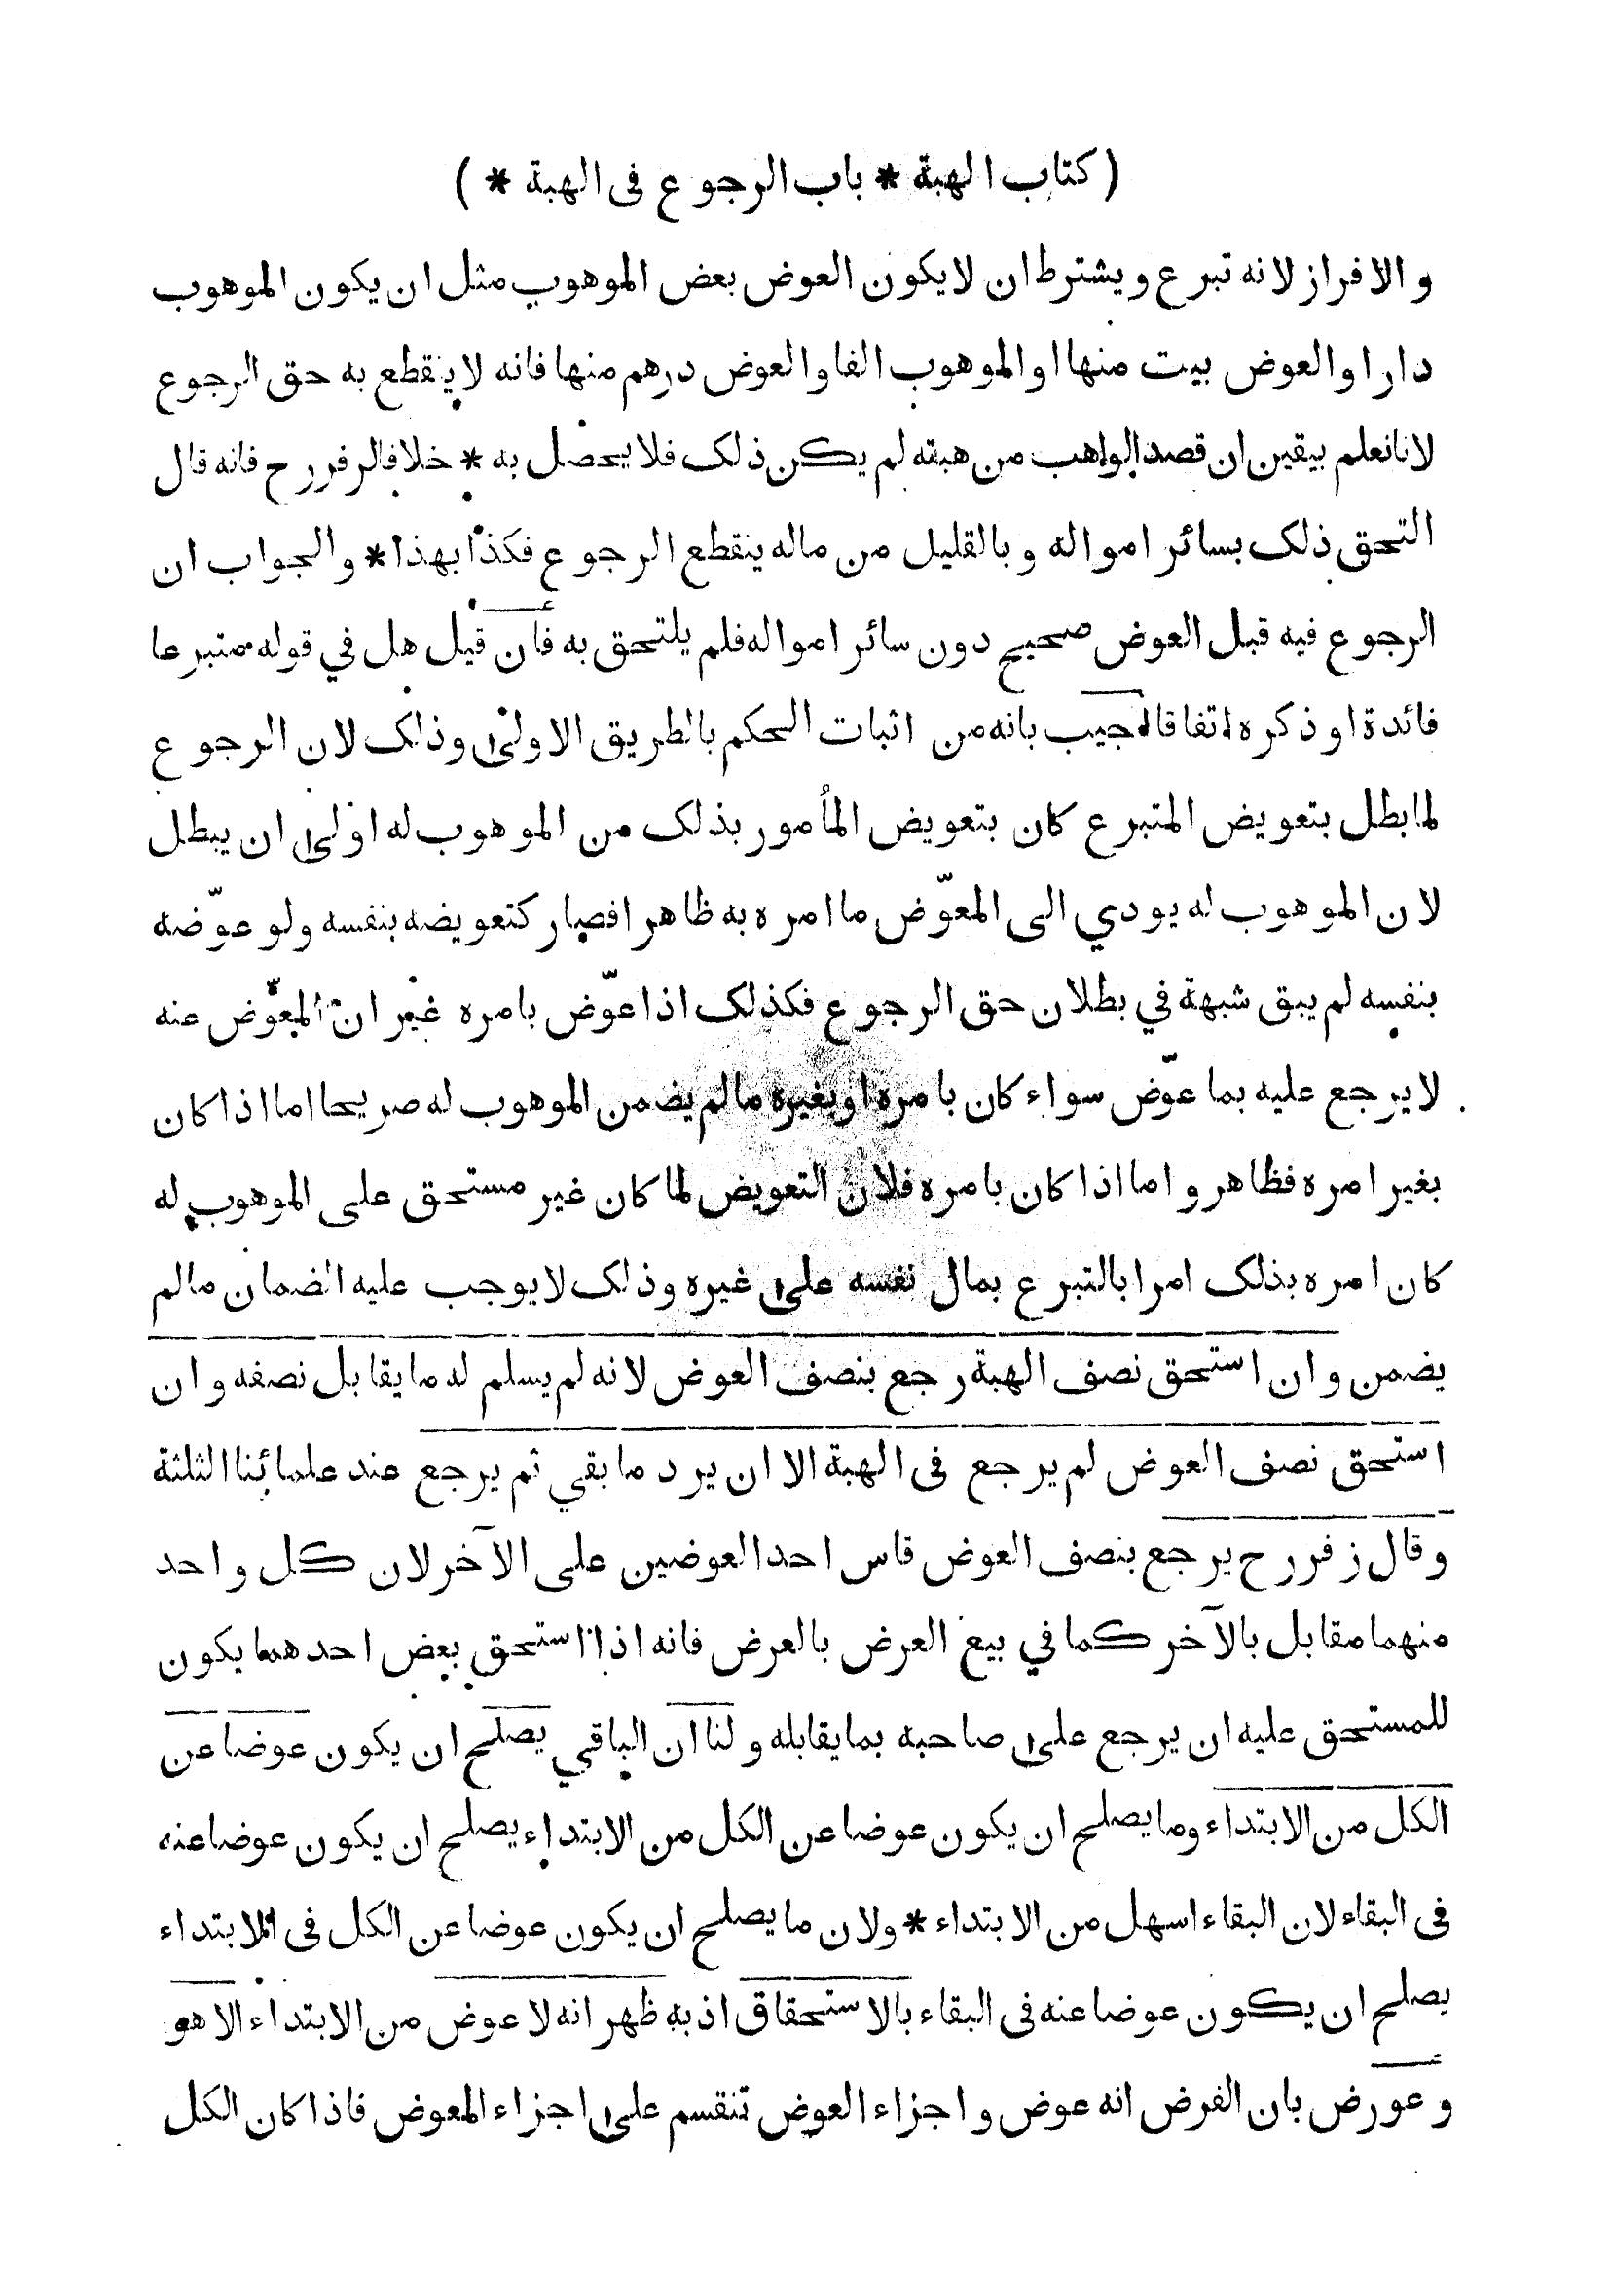 ( كتاب الهبة * باب الرجوع فى الهبة * )
و الافراز لانه تبرع ويشترط ان لايكون العوض بعض الموهوب مثل ان يكون الموهوب
دارا والعوض بيت منها او الموهوب الفا والعوض درهم منها فانه لاينقطع به حق الرجوع
لانانعلم بيقين ان قصد الواهب من هبته لم يكن ذلك فلا يحصل به * خلافا لزفر رح فانه قال
التحق ذلك بسائر امواله وبالقليل من ماله ينقطع الرجوع فكذا بهذا * والجواب ان
الرجوع فيه قبل العوض صحيح دون سائر امواله فلم يلتحق به فان قيل هل في قوله متبرعا
فائدة او ذكره اتفاقا اجيب بانه من اثبات الحكم بالطريق الاولى وذلك لان الرجوع
لما بطل بتعويض المتبرع كان بتعويض المأمور بذلك من الموهوب له اولى ان يبطل
لان الموهوب له يودي الى المعوّض ما امره به ظاهرا فصار كتعويضه بنفسه ولو عوّضه
بنفسه لم يبق شبهة في بطلان حق الرجوع فكذلك اذا عوّض بامره غير ان المعوّض عنه
لا يرجع عليه بما عوّض سواء كان بامره او بغيره مالم يضمن الموهوب له صريحا اما اذا كان
بغير امره فظاهر و اما اذا كان بامره فلان التعويض لما كان غير مستحق على الموهوب له
كان امره بذلك امرا بالتبرع بمال نفسه على غيره وذلك لايوجب عليه الضمان مالم
يضمن و ان استحق نصف الهبة رجع بنصف العوض لانه لم يسلم له ما يقابل نصفه و ان
استحق نصف العوض لم يرجع فى الهبة الا ان يرد ما بقي ثم يرجع عند علمائنا الثلثة
وقال زفر رح يرجع بنصف العوض قاس احد العوضين على الآخر لان كل واحد
منهما مقابل بالآخر كما في بيع العرض بالعرض فانه اذا استحق بعض احدهما يكون
للمستحق عليه ان يرجع على صاحبه بما يقابله ولنا ان الباقي يصلح ان يكون عوضا عن
الكل من الابتداء وما يصلح ان يكون عوضا عن الكل من الابتداء يصلح ان يكون عوضا عنه
فى البقاء لان البقاء اسهل من الابتداء * ولان ما يصلح ان يكون عوضا عن الكل فى الابتداء
يصلح ان يكون عوضا عنه فى البقاء بالاستحقاق اذ به ظهر انه لا عوض من الابتداء الا هو
و عورض بان الفرض انه عوض و اجزاء العوض تنقسم على اجزاء المعوض فاذا كان الكل